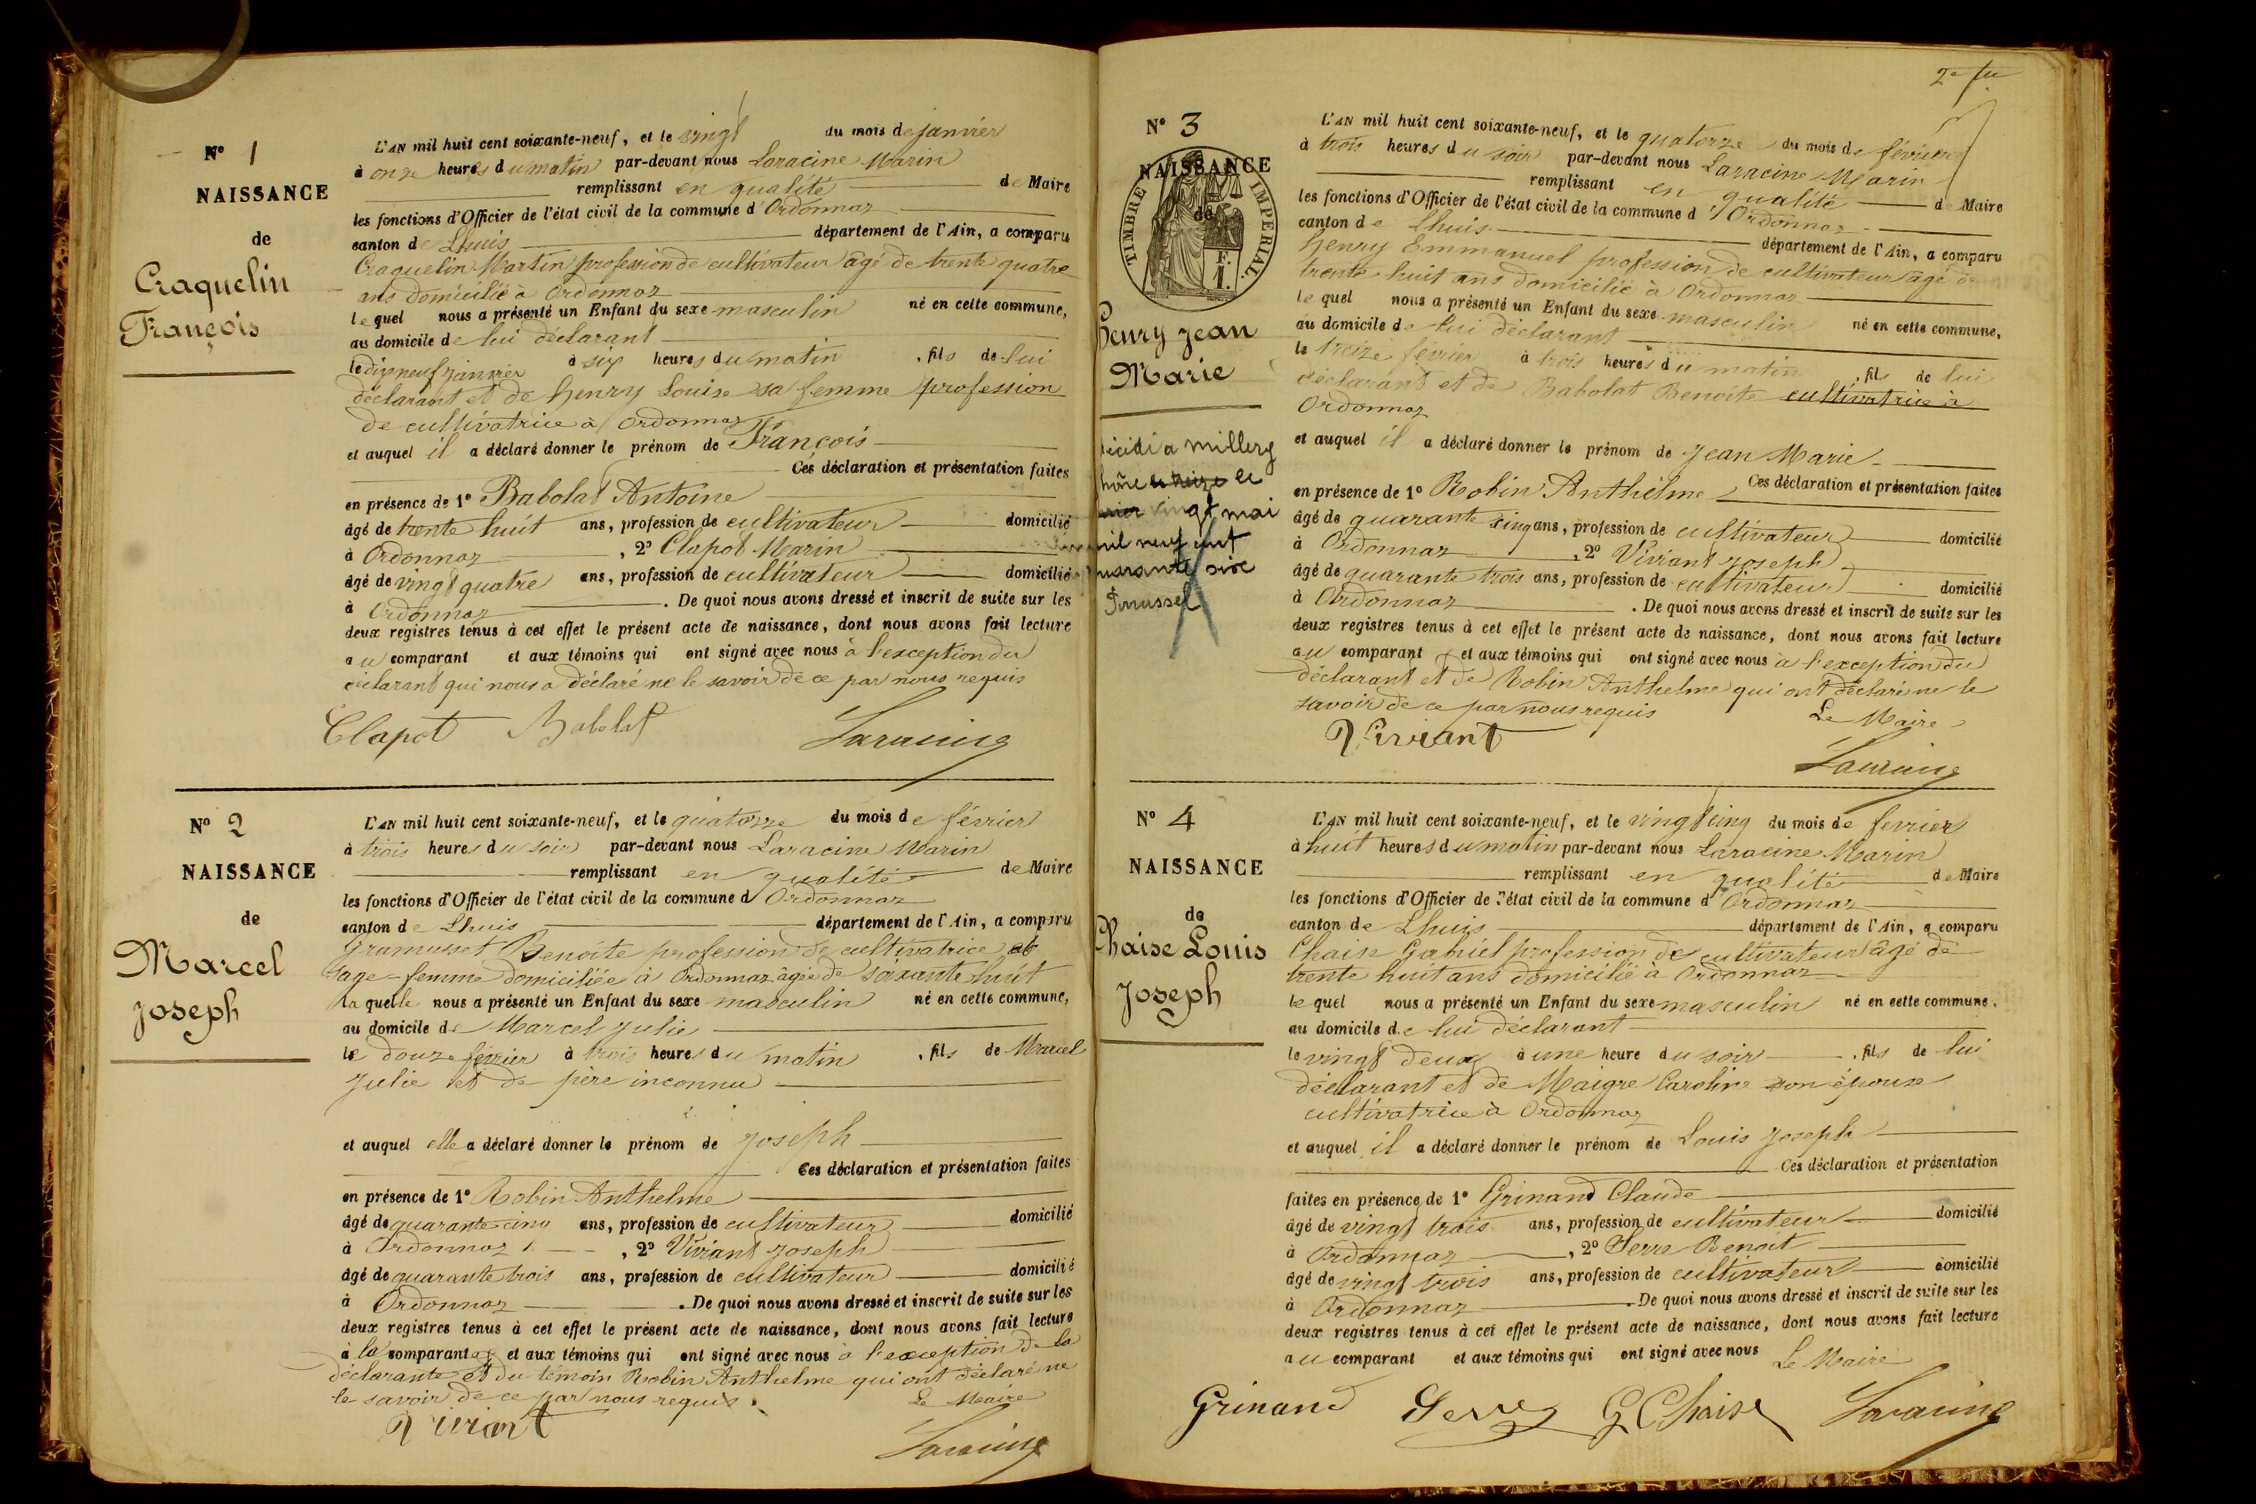 N° 1
NAISSANCE
de
Craquelin
François
L'AN mil huit cent soixante-neuf, et le vingt du mois de janvier
à onze heures du matin par-devant nous Laracine Marin
remplissant en qualité de Maire
les fonctions d'Officier de l'état civil de la commune d'Ordonnaz
canton de Lhuis département de l'Ain, a comparu
Craquelin Martin profession de cultivateur âgé de trente quatre
ans domicilié à Ordonnaz
lequel nous a présenté un Enfant du sexe masculin né en cette commune,
au domicile de lui déclarant
le dix neuf janvier à six heures du matin, fils de lui
déclarant et de henry Louise sa femme profession
de cultivatrice à Ordonnaz
et auquel il a déclaré donner le prénom de François
Ces déclaration et présentation faites
en présence de 1° Babolat Antoine
âgé de trente huit ans, profession de cultivateur domicilié
à Ordonnaz, 2° Clapot Marin
âgé de vingt quatre ans, profession de cultivateur domicilié
à Ordonnaz. De quoi nous avons dressé et inscrit de suite sur les
deux registres tenus à cet effet le présent acte de naissance, dont nous avons fait lecture
au comparant et aux témoins qui ont signé avec nous à l'exception du
déclarant qui nous a déclaré ne le savoir de ce par nous requis
Clapot Babolat Laracine
N° 2
NAISSANCE
de
Marcel
Joseph
L'AN mil huit cent soixante-neuf, et le quatorze du mois de février
à trois heures du soir par-devant nous Laracine Marin
remplissant en qualité de Maire
les fonctions d'Officier de l'état civil de la commune d'Ordonnaz
canton de Lhuis département de l'Ain, a comparu
Gramusset Benoite profession de cultivatrice et
sage-femme domiciliée à Ordonnaz âgée de soixante huit
laquelle nous a présenté un Enfant du sexe masculin né en cette commune,
au domicile de Marcel Julie
le douze février à trois heures du matin, fils de Marcel
Julie et de père inconnu
et auquel elle a déclaré donner le prénom de Joseph
Ces déclaration et présentation faites
en présence de 1° Robin Anthelme
âgé de quarante cinq ans, profession de cultivateur domicilié
à Ordonnaz, 2° Viviant Joseph
âgé de quarante trois ans, profession de cultivateur domicilié
à Ordonnaz. De quoi nous avons dressé et inscrit de suite sur les
deux registres tenus à cet effet le présent acte de naissance, dont nous avons fait lecture
à la comparante et aux témoins qui ont signé avec nous à l'exception de la
déclarante et du témoin Robin Anthelme qui ont déclaré ne
le savoir de ce par nous requis.
Le Maire
Viviant Laracine
2e
N° 3
NAISSANCE
de
TIMBRE IMPERIAL.
F.
1.
henry Jean
Marie
décédé a millery
rhône le
vingt mai
mil neuf cent
quarante six
L'AN mil huit cent soixante-neuf, et le quatorze du mois de février
à trois heures du soir par-devant nous Laracine Marin
remplissant en qualité de Maire
les fonctions d'Officier de l'état civil de la commune d'Ordonnaz
canton de Lhuis département de l'Ain, a comparu
henry Emmanuel profession de cultivateur âgé de
trente huit ans domicilié à Ordonnaz
lequel nous a présenté un Enfant du sexe masculin né en cette commune,
au domicile de lui déclarant
le treize février à trois heures du matin, fils de lui
déclarant et de Babolat Benoite cultivatrice à
Ordonnaz
et auquel il a déclaré donner le prénom de Jean Marie
Ces déclaration et présentation faites
en présence de 1° Robin Anthelme
âgé de quarante cinq ans, profession de cultivateur domicilié
à Ordonnaz, 2° Viviant Joseph
âgé de quarante trois ans, profession de cultivateur domicilié
à Ordonnaz. De quoi nous avons dressé et inscrit de suite sur les
deux registres tenus à cet effet le présent acte de naissance, dont nous avons fait lecture
au comparant et aux témoins qui ont signé avec nous à l'exception du
déclarant et de Robin Anthelme qui ont déclaré ne le
savoir de ce par nous requis Le Maire
Viviant Laracine
N° 4
NAISSANCE
de
Chaise Louis
Joseph
L'AN mil huit cent soixante-neuf, et le vingt cinq du mois de fevrier
à huit heures du matin par-devant nous Laracine Marin
remplissant en qualité de Maire
les fonctions d'Officier de l'état civil de la commune d'Ordonnaz
canton de Lhuis département de l'Ain, a comparu
Chaise Gabriel profession de cultivateur âgé de
trente huit ans domicilié à Ordonnaz
lequel nous a présenté un Enfant du sexe masculin né en cette commune,
au domicile de lui déclarant
le vingt deux à une heure du soir, fils de lui
déclarant et de Maigre Caroline son épouse
cultivatrice à Ordonnaz
et auquel il a déclaré donner le prénom de Louis Joseph
Ces déclaration et présentation
faites en présence de 1° Grinand Claude
âgé de vingt trois ans, profession de cultivateur domicilié
à Ordonnaz, 2° Serre Benoit
âgé de vingt trois ans, profession de cultivateur domicilié
à Ordonnaz. De quoi nous avons dressé et inscrit de suite sur les
deux registres tenus à cet effet le présent acte de naissance, dont nous avons fait lecture
au comparant et aux témoins qui ont signé avec nous
Le Maire
Grinand Serre G Chaise Laracine